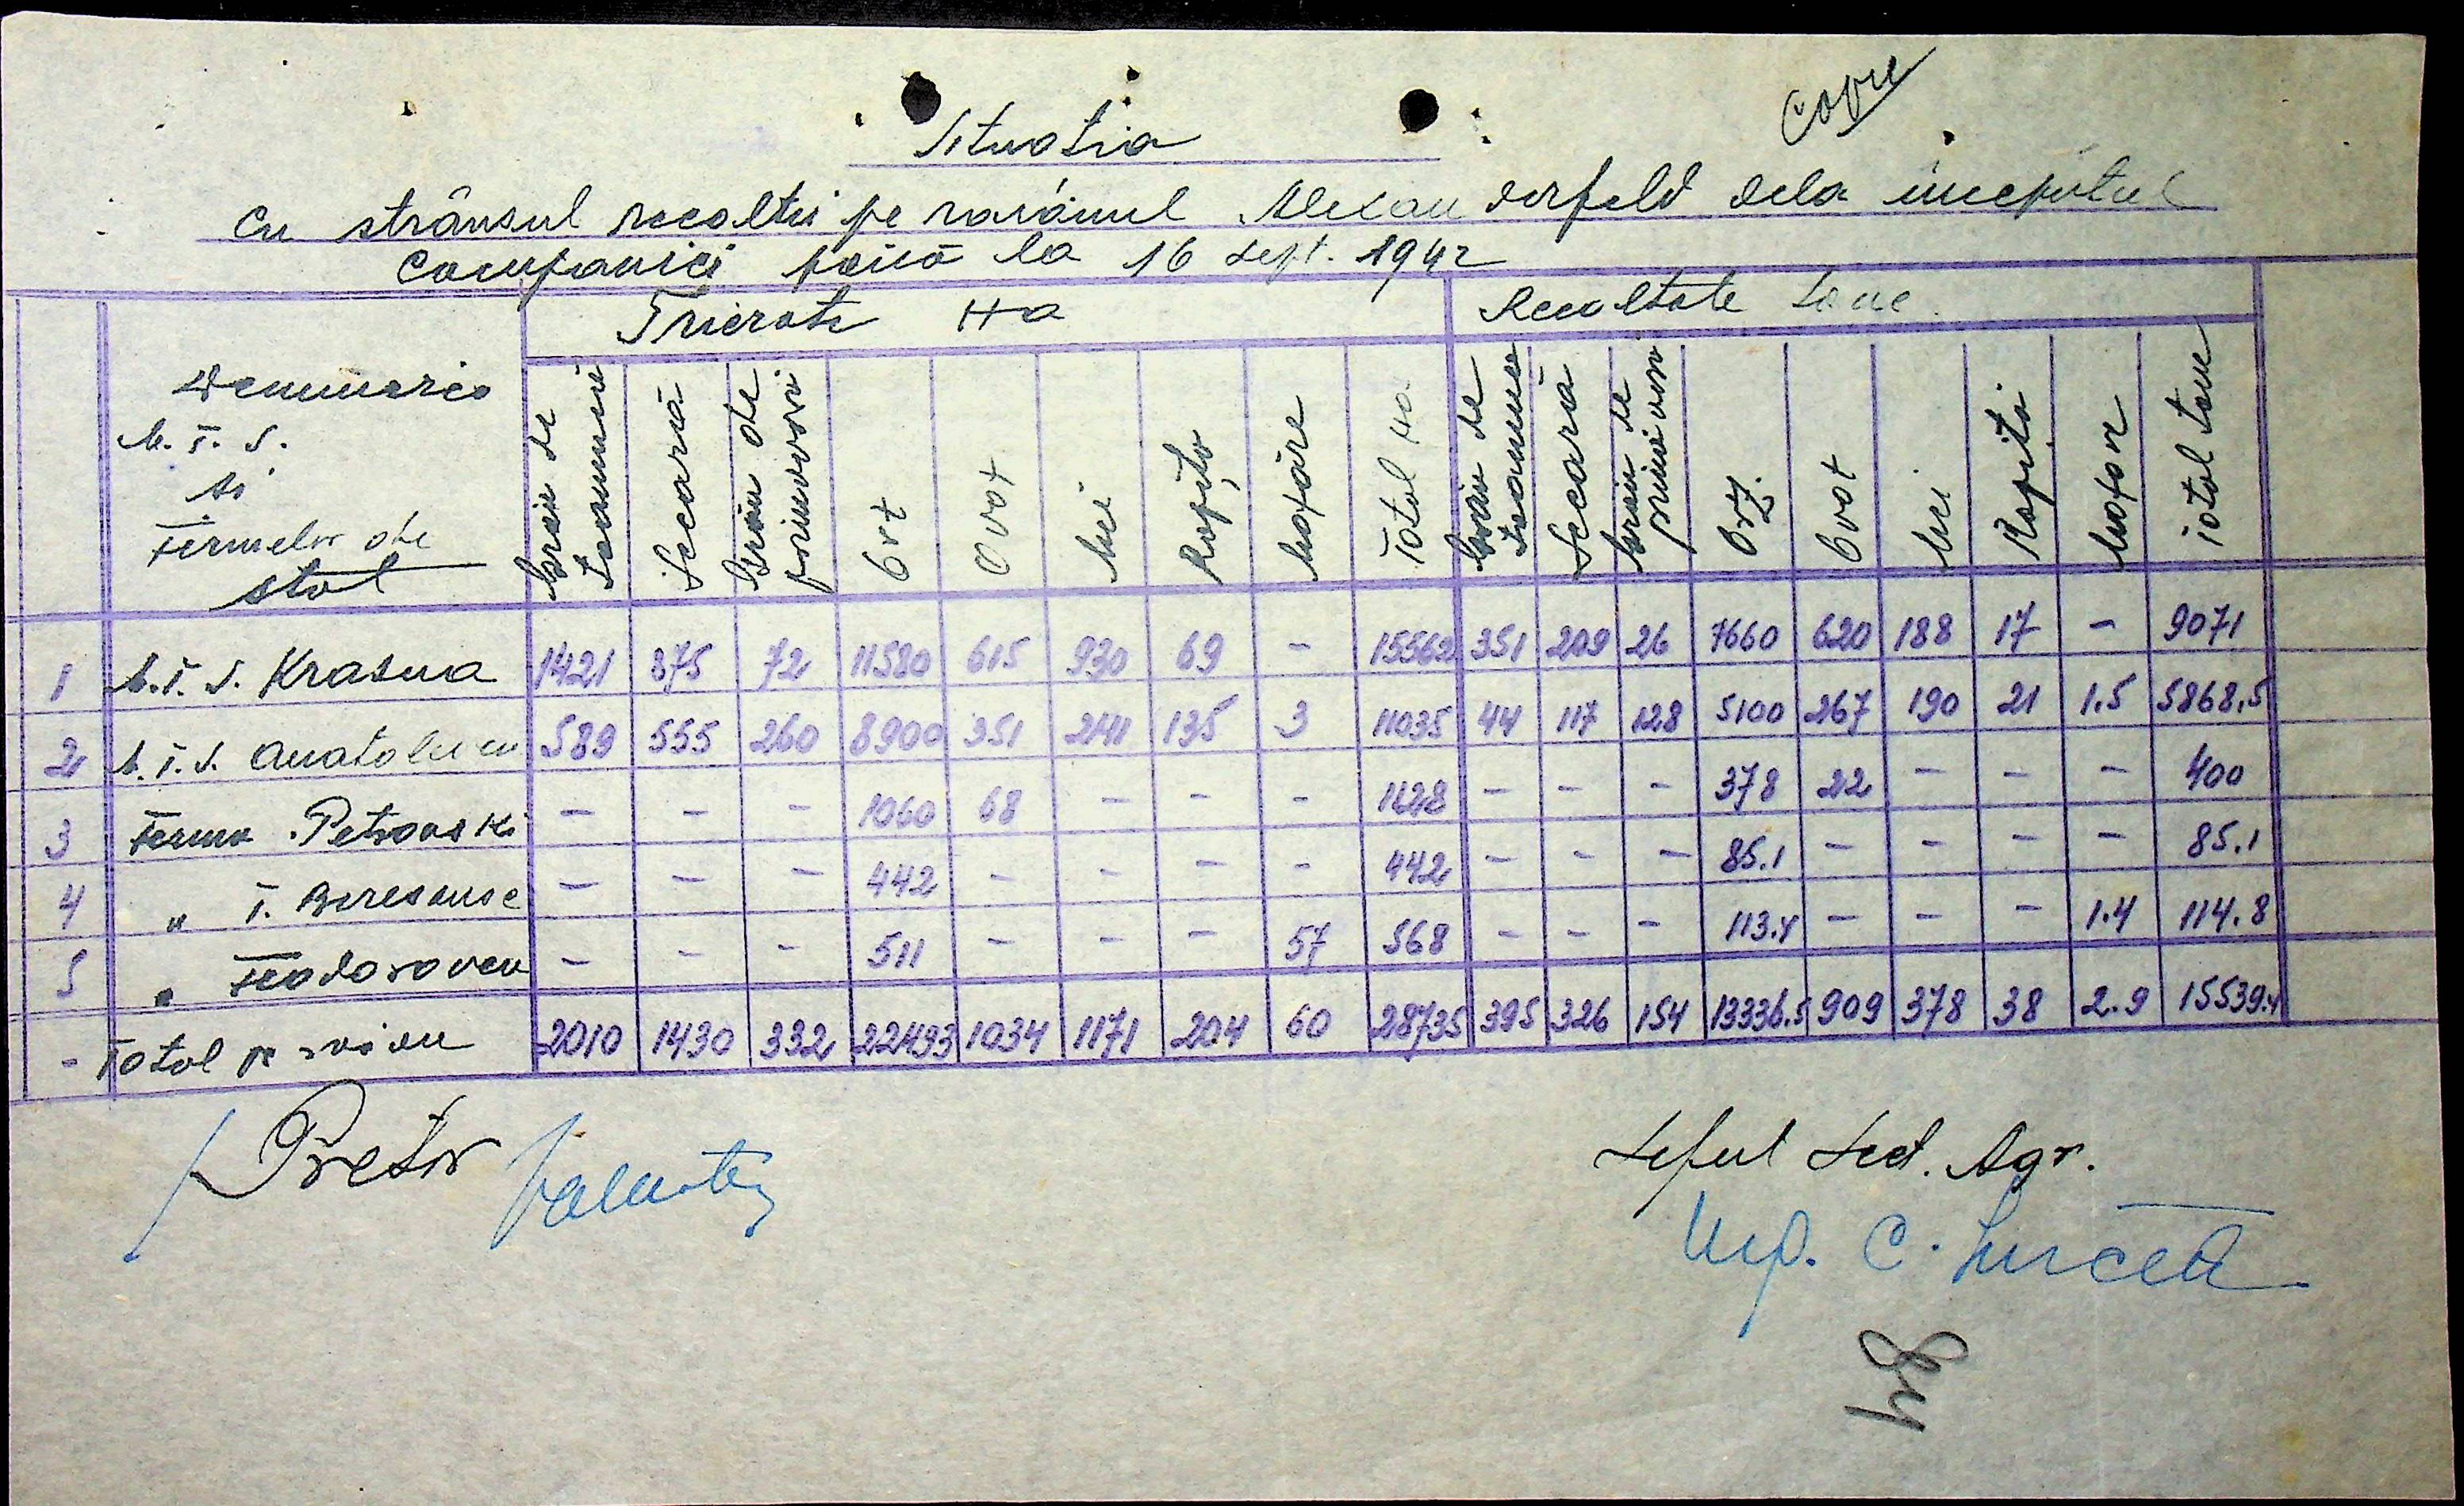 Copie
Situatia
Cu strânsul recoltei pe raionul Alexanderfeld dela inceputul
Campaniei până la 16 Sept. 1942
Trierate Ha
Recoltate tone
Denumirea
M. T. S.
si
Fermelor de
stat
Grâu de toamnă
Secară
Grâu de primăvară
Orz
Ovăz
Mei
Rapița
Mazăre
Total Ha
Grâu de toamnă
Secară
Grâu de primăvară
Orz.
Ovăz
Mei
Rapița
Mazăre
Total tone
1 M.T.S. Krasna 1421 875 72 11580 615 930 69 - 15562 351 209 26 7660 620 188 17 - 9071
2 M.T.S. Anatolievca 589 555 260 8900 351 241 135 3 11035 44 117 128 5100 267 190 21 1.5 5868.5
3 Ferma Petrovski - - - 1060 68 - - - 1128 - - - 378 22 - - - 400
4 " T. Beresanse - - - 442 - - - - 442 - - - 85.1 - - - - 85.1
5 " Feodorovca - - - 511 - - - 57 568 - - - 113.4 - - - 1.4 114.8
- Total pe raion 2010 1430 332 22493 1034 1171 204 60 28735 395 326 154 13336.5 909 378 38 2.9 15539.4
Pretor
Seful Sect. Agr.
Ing. C.
84